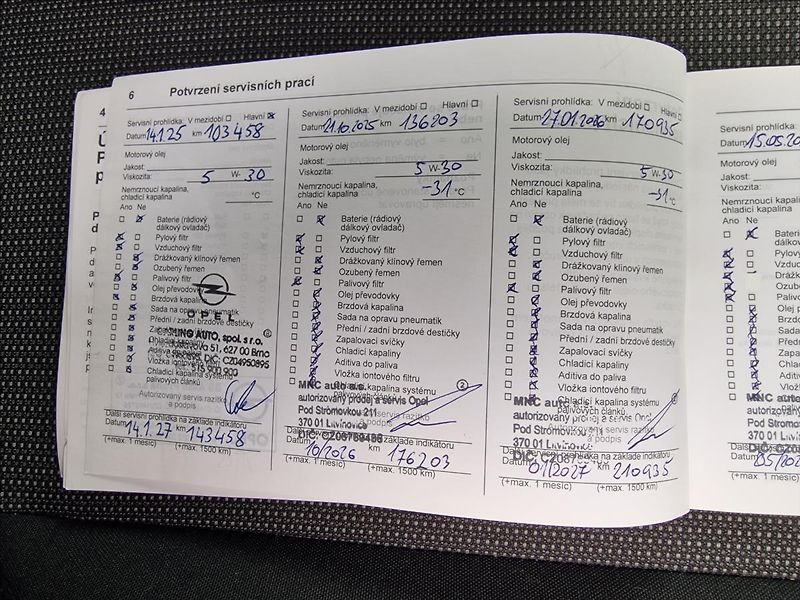 6 Potvrzení servisních prací
Servisní prohlídka: V mezidobí Hlavní
Datum 14.1.25 km 103458
Motorový olej
Jakost:
Viskozita: 5 W- 30
Nemrznoucí kapalina,
chladicí kapalina °C
Ano Ne
Baterie (rádiový
dálkový ovladač)
Pylový filtr
Vzduchový filtr
Drážkovaný klínový řemen
Ozubený řemen
Palivový filtr
Olej převodovky
Brzdová kapalina
Sada na opravu pneumatik
Přední / zadní brzdové destičky
OPEL
AUTO, spol. s r.o.
51, 627 00 Brno
DIČ: CZ04950895
palivových článků
Autorizovaný servis razítko
a podpis
Další servisní prohlídka na základě indikátoru
Datum 14.1.27 km 143458
(+max. 1 měsíc) (+max. 1500 km)
Servisní prohlídka: V mezidobí Hlavní
Datum 21.10.2025 km 136203
Motorový olej
Jakost:
Viskozita: 5 W-30
Nemrznoucí kapalina,
chladicí kapalina -31 °C
Ano Ne
Baterie (rádiový
dálkový ovladač)
Pylový filtr
Vzduchový filtr
Drážkovaný klínový řemen
Ozubený řemen
Palivový filtr
Olej převodovky
Brzdová kapalina
Sada na opravu pneumatik
Přední / zadní brzdové destičky
Zapalovací svíčky
Chladicí kapaliny
Aditiva do paliva
Vložka iontového filtru
kapalina systému
MNC auto a.s.
autorizovaný prodej a servis Opel
Pod Stromovkou 211
370 01 Litvínovice
2
Další servisní prohlídka na základě indikátoru
Datum 10/2026 km 176203
(+max. 1 měsíc) (+max. 1500 km)
Servisní prohlídka: V mezidobí Hlavní
Datum 27.01.2026 km 170935
Motorový olej
Jakost:
Viskozita: 5 W-30
Nemrznoucí kapalina,
chladicí kapalina -31 °C
Ano Ne
Baterie (rádiový
dálkový ovladač)
Pylový filtr
Vzduchový filtr
Drážkovaný klínový řemen
Ozubený řemen
Palivový filtr
Olej převodovky
Brzdová kapalina
Sada na opravu pneumatik
Přední / zadní brzdové destičky
Zapalovací svíčky
Chladicí kapaliny
Aditiva do paliva
Vložka iontového filtru
Chladicí kapalina systému
palivových článků
MNC auto
autorizovaný prodej a servis Opel
Pod Stromovkou 211
370 01 Litvínovice
servisní prohlídka na základě indikátoru
Datum 01/2027 km 210935
(+max. 1 měsíc) (+max. 1500 km)
Servisní prohlídka:
Datum 15.05.20
Motorový olej
Jakost:
Viskozita:
Nemrznoucí kapalina,
chladicí kapalina
Ano Ne
Baterie
dálkový
Pylový
Vzduchov
Drážkova
Ozuben
Palivov
Olej p
Brzdo
Sada
Před
MNC a
autorizovan
Pod Stromo
370 01 Lit
DIČ: C
Datum
(+max. 1 měsíc)